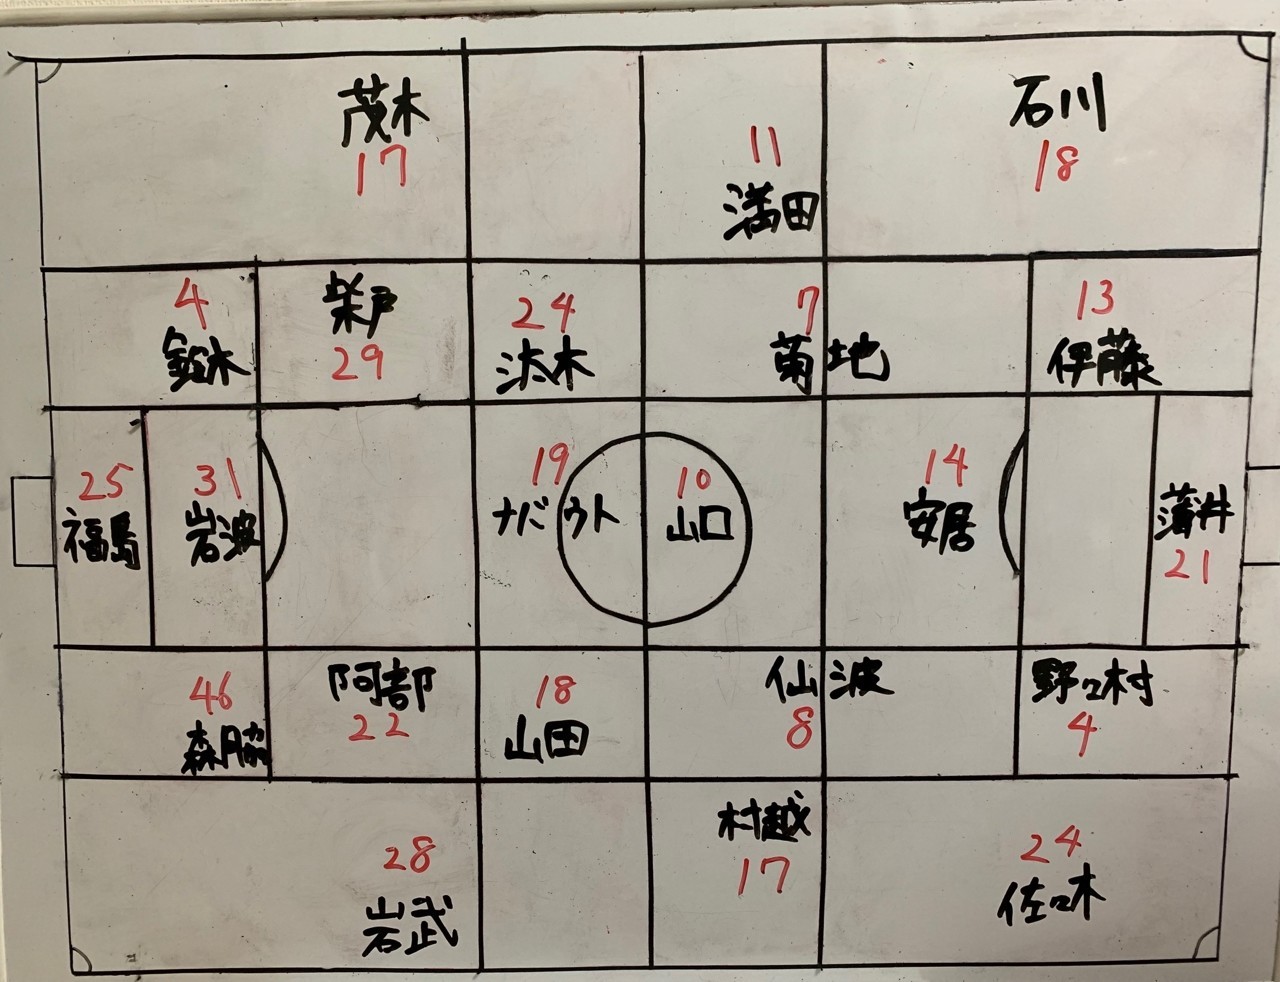 茂木
17
11
満田
石川
18
4
鈴木
柴戸
29
24
汰木
7
菊地
13
伊藤
25
福島
31
岩波
19
ナバウト
10
山口
14
安居
蒲井
21
46
森脇
阿部
22
18
山田
仙波
8
野々村
4
28
岩武
村越
17
24
佐々木